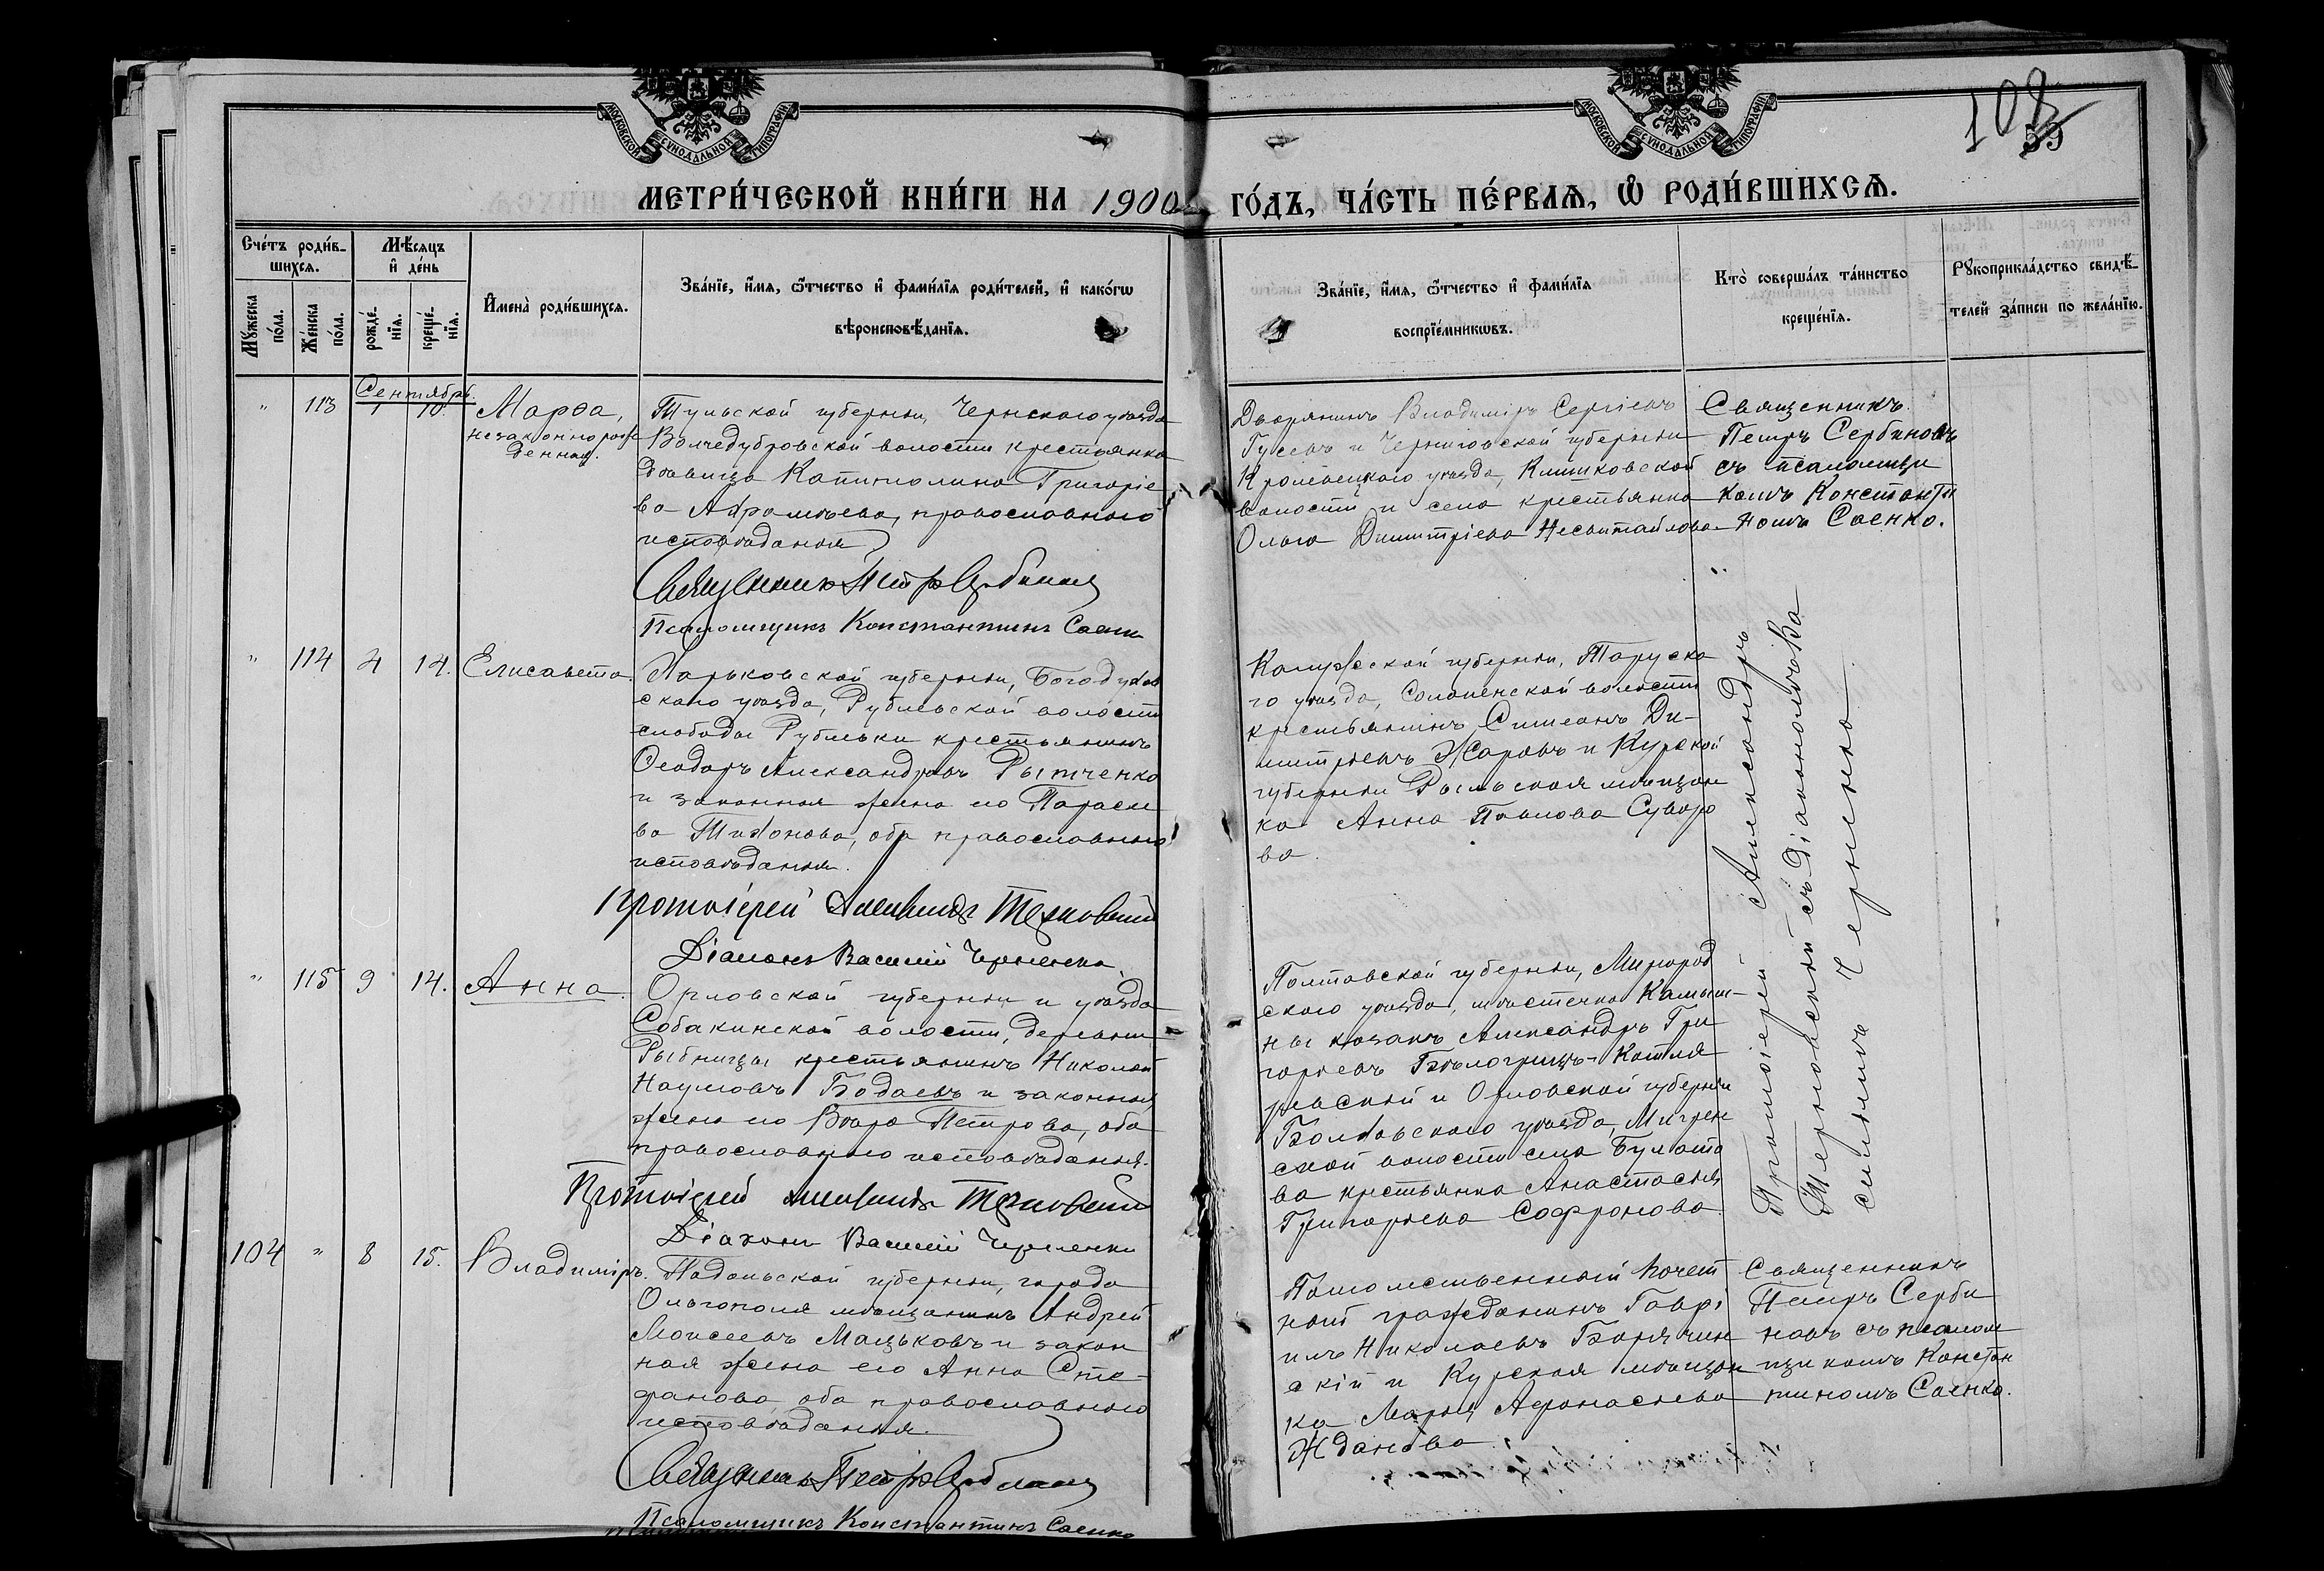 108
53
МОСКОВСКОЙ СѴНОДАЛЬНОЙ ТИПОГРАФІИ
МОСКОВСКОЙ СѴНОДАЛЬНОЙ ТИПОГРАФІИ
МЕТРИ́ЧЕСКОЙ КНИ́ГИ НА 1900 ГО́ДЪ, ЧА́СТЬ ПЕ́РВАѦ, Ѡ҆ РОДИ́ВШИХСѦ.
Сче́тъ роди́в-
шихсѧ.
Мꙋ́жеска по́ла.
Же́нска по́ла.
Мѣ́сѧцъ
и҆ де́нь
рожде́-
нїѧ.
креще́-
нїѧ.
И҆мена̀ роди́вшихсѧ.
Зва́нїе, и҆́мѧ, ѻ҆́тчество и҆ фами́лїѧ роди́телей, и҆ како́гѡ
вѣроисповѣ́данїѧ.
Зва́нїе, и҆́мѧ, ѻ҆́тчество и҆ фами́лїѧ
воспрїе́мникѡвъ.
Кто̀ соверша́лъ та́инство
креще́нїѧ.
Рꙋкоприкла́дство свидѣ́-
телей за́писи по жела́нїю.
Сентябрь.
" 113 1 10. Марѳа,
незаконнорож
денная.
Тульской губерніи, Чернскаго уѣзда
Волчедубровской волости крестьянка
дѣвица Капитолина Григоріе
ва Ахромѣева, православнаго
исповѣданія
Священникъ Петръ Сербиновъ
Псаломщикъ Константинъ Саенко
Дворянинъ Владиміръ Сергѣевъ
Гусевъ и Черниговской губерніи
Кролевецкаго уѣзда, Клишковской
волости и села крестьянка
Ольга Димитріева Несвитайлова.
Священникъ
Петръ Сербиновъ
съ псаломщи
комъ Константи
номъ Саенко.
" 114 4 14. Елисавета.
Харьковской губерніи, Богодухов
скаго уѣзда, Рублевской волости
слободы Рублевки крестьянинъ
Ѳеодоръ Александровъ Рытченко
и законная жена его Параске
ва Тихонова, оба православнаго
исповѣданія.
Протоіерей Александръ Терновскій
Діаконъ Василій Черненко
Калужской губерніи, Тарусска
го уѣзда, Солопенской волости
крестьянинъ Симеонъ Ди-
митріевъ Жаровъ и Курской
губерніи Рыльская мѣщан
ка Анна Павлова Суворо
ва.
Протоіерей Александръ
Терновскій съ діакономъ Ва
силіемъ Черненко
" 115 9 14. Анна.
Орловской губерніи и уѣзда
Собакинской волости, деревни
Рыбницы крестьянинъ Николай
Наумовъ Бодаевъ и законная
жена его Вѣра Петрова, оба
православнаго исповѣданія.
Протоіерей Александръ Терновскій
Діаконъ Василій Черненко
Полтавской губерніи, Миргород
скаго уѣзда, мѣстечка Камыш-
ны козакъ Александръ Гри
горьевъ Бѣлогрицъ-Котля
ревскій и Орловской губерніи
Болховскаго уѣзда,
ской волости села Булато
ва крестьянка Анастасія
Григорьева Софронова.
104 " 8 15. Владиміръ.
Подольской губерніи, города
Ольгополя мѣщанинъ Андрей
Моисеевъ Мацьковъ и закон
ная жена его Анна Сте-
фанова, оба православнаго
исповѣданія.
Священникъ Петръ Сербиновъ
Псаломщикъ Константинъ Саенко
Потомственный почет
ный гражданинъ Гаврі
илъ Николаевъ Борячин
скій и Курская мѣщан
ка Марія Аѳанасьева
Жданова.
Священникъ
Петръ Серби
новъ съ псалом
щикомъ Констан
тиномъ Саенко.